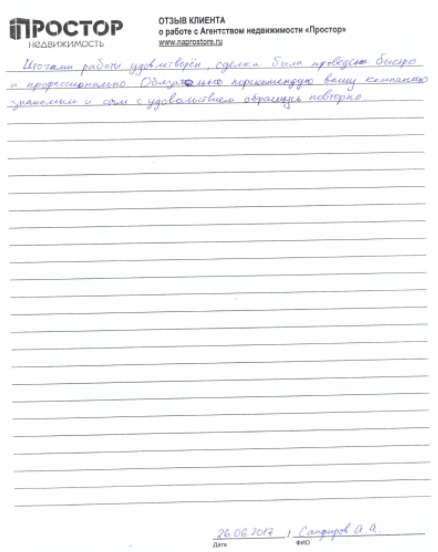 ПРОСТОР
НЕДВИЖИМОСТЬ
ОТЗЫВ КЛИЕНТА
о работе с Агентством недвижимости «Простор»
www.naprostore.ru
Итогами работы удовлетворён, сделка была проведена быстро
и профессионально. Обязательно порекомендую вашу компанию
знакомым и сам с удовольствием обращусь повторно.
26.06.2017 / Сапфиров А.А.
Дата ФИО